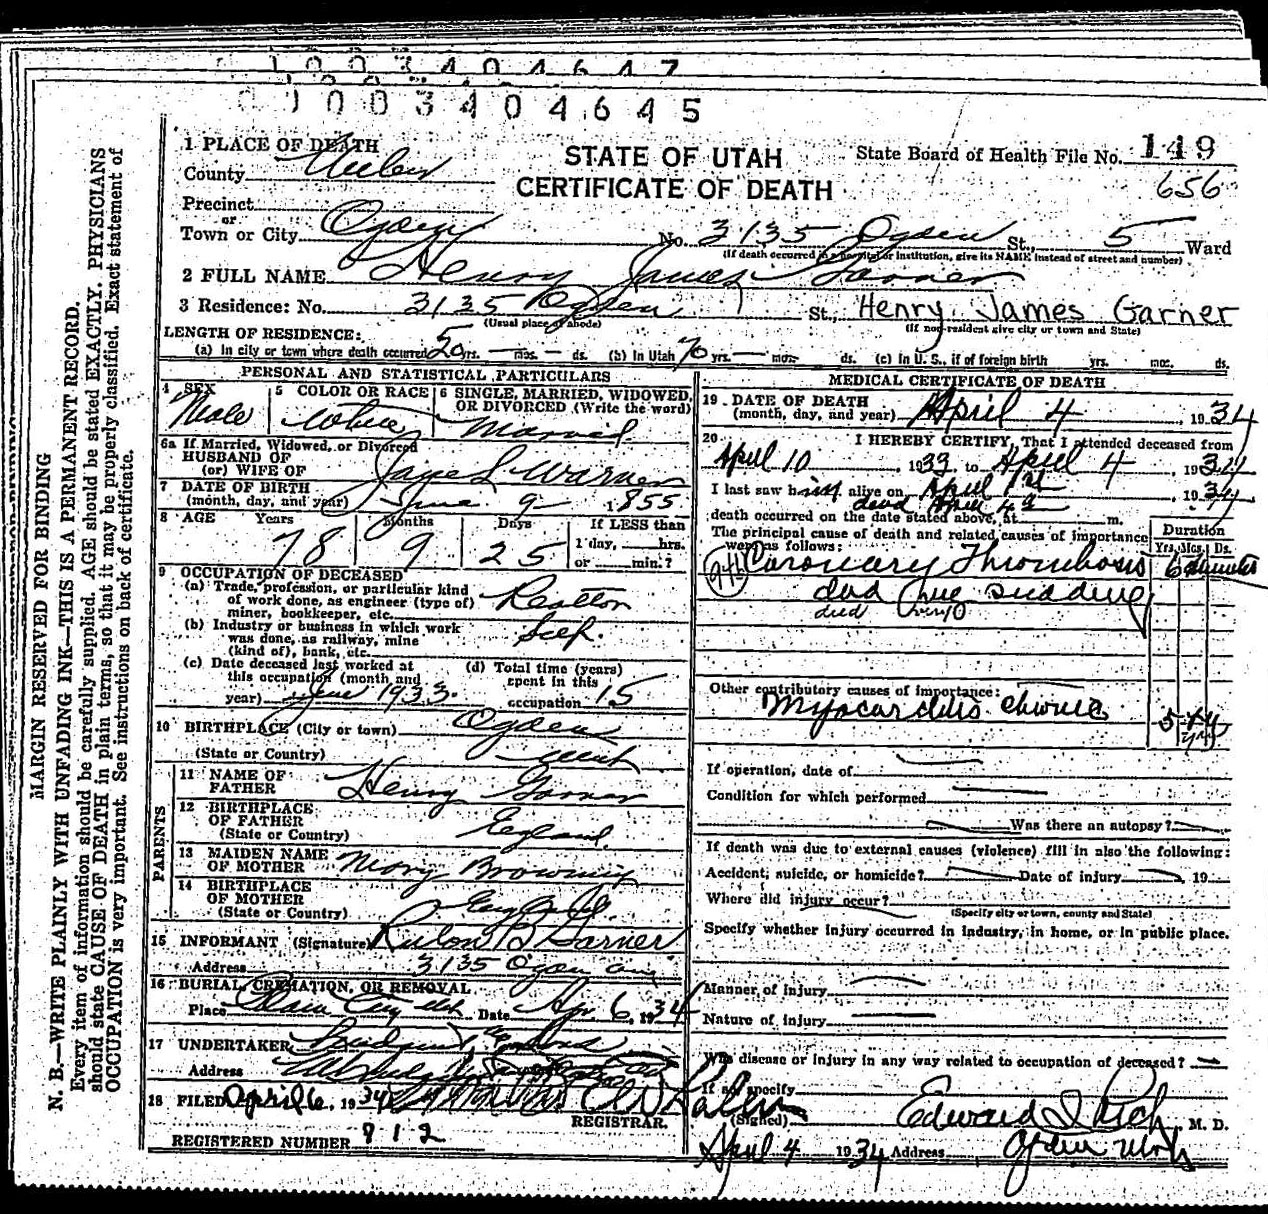 1003404647
01003404645
MARGIN RESERVED FOR BINDING
N. B.—WRITE PLAINLY WITH UNFADING INK—THIS IS A PERMANENT RECORD.
Every item of information should be carefully supplied. AGE should be stated EXACTLY. PHYSICIANS
should state CAUSE OF DEATH in plain terms, so that it may be properly classified. Exact statement of
OCCUPATION is very important. See instructions on back of certificate.
STATE OF UTAH
CERTIFICATE OF DEATH
State Board of Health File No. 149
656
1 PLACE OF DEATH
County Weber
Precinct
or
Town or City Ogden No. 3135 Ogden St., 5 Ward
(If death occurred in a hospital or institution, give its NAME instead of street and number)
2 FULL NAME Henry James Garner
3 Residence: No. 3135 Ogden St., Henry James Garner
(Usual place of abode) (If non-resident give city or town and State)
LENGTH OF RESIDENCE:
(a) In city or town where death occurred 50 yrs. — mos. — ds. (b) In Utah 70 yrs. — mos. ds. (c) In U. S., if of foreign birth yrs. mos. ds.
PERSONAL AND STATISTICAL PARTICULARS
4 SEX Male
5 COLOR OR RACE White
6 SINGLE, MARRIED, WIDOWED, OR DIVORCED (Write the word) Married
6a If Married, Widowed, or Divorced
HUSBAND OF
(or) WIFE OF Jane L Warner
7 DATE OF BIRTH
(month, day, and year) June 9 - 1855
8 AGE Years Months Days If LESS than
78 9 25 1 day, hrs.
or min.?
9 OCCUPATION OF DECEASED
(a) Trade, profession, or particular kind
of work done, as engineer (type of)
miner, bookkeeper, etc. Realtor
(b) Industry or business in which work
was done, as railway, mine
(kind of), bank, etc. Self.
(c) Date deceased last worked at
this occupation (month and
year) June 1933.
(d) Total time (years)
spent in this
occupation 15
10 BIRTHPLACE (City or town) Ogden
(State or Country) Utah
PARENTS
11 NAME OF
FATHER Henry Garner
12 BIRTHPLACE
OF FATHER
(State or Country) England.
13 MAIDEN NAME
OF MOTHER Mary Browning
14 BIRTHPLACE
OF MOTHER
(State or Country) England.
15 INFORMANT (Signature) Rulon B Garner
Address 3135 Ogden ave
16 BURIAL, CREMATION, OR REMOVAL
Place Plain City Utah Date Apr. 6, 1934
17 UNDERTAKER
Address
18 FILED April 6, 1934
REGISTRAR.
REGISTERED NUMBER 812
MEDICAL CERTIFICATE OF DEATH
19 DATE OF DEATH
(month, day, and year) April 4, 1934
20 I HEREBY CERTIFY, That I attended deceased from
April 10, 1933 to April 4, 1934
I last saw him alive on April 1st, 1934
dead April 4th
death occurred on the date stated above, at m.
The principal cause of death and related causes of importance
were as follows:
Duration
Yrs. Mos. Ds.
94b Coronary Thrombosis
died very sudden
died very
Other contributory causes of importance:
Myocarditis chronic
If operation, date of
Condition for which performed
Was there an autopsy?
If death was due to external causes (violence) fill in also the following:
Accident, suicide, or homicide? Date of injury , 19
Where did injury occur?
(Specify city or town, county and State)
Specify whether injury occurred in industry, in home, or in public place.
Manner of injury
Nature of injury
Was disease or injury in any way related to occupation of deceased?
If so specify
(Signed) Edward I Rich, M. D.
April 4 1934 Address Ogden Utah